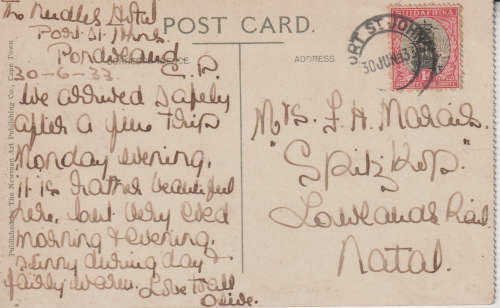 The Needles Hotel
Port St Johns.
Pondoland
C.P.
30-6-33
We arrived safely
after a fine trip
Monday evening.
it is rather beautiful
here, but very cold
morning & evening.
sunny during day &
fairly warm. Love to all
Olive.
POST CARD.
CORRESPONDENCE
ADDRESS
Published by The Newman Art Publishing Co., Cape Town
PORT ST JOHNS
30 JUN 33
SUIDAFRIKA
Mrs. F. H. Marais.
"Spitzkop"
Lowlands Rail
Natal.